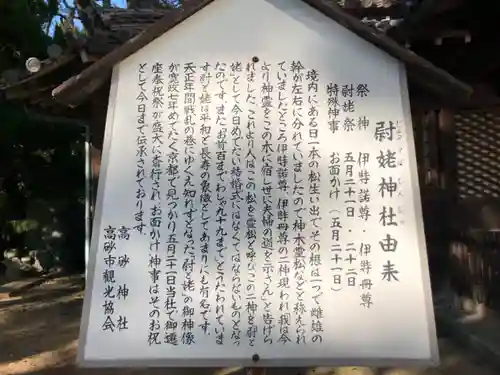 尉姥神社由来
じょう うば じん じゃ ゆ らい
祭神 伊弉諾尊 伊弉冊尊
尉姥祭 五月二十一日・二十二日
特殊神事 お面かけ(五月二十一日)
境内にある日一本の松生い出で、その根は一つで雌雄の
幹が左右に分れていましたので神木霊松などと称えられ
ていましたところ伊弉諾尊、伊弉冊尊の二神現われ「我は今
より神霊をこの木に宿し世に夫婦の道を示さん」と告げら
れました。これより人はこの松を霊松と呼びこの二神を尉と
姥として今日めでたい結婚式にはなくてはならないものとなっ
たのです。お前百までわしゃ九十九まで」とうたわれていま
す尉と姥は平和と長寿の象徴としてあまりにも有名です。
天正年間戦乱の巷にゆくえ知れずとなった「尉と姥」の御神像
が寛政七年めでたく京都で見つかり五月二十一日当社でご遷
座奉祝祭が盛大に斎行され、お面かけ神事はそのお祝
として今日まで伝承されております。
高砂神社
高砂市観光協会